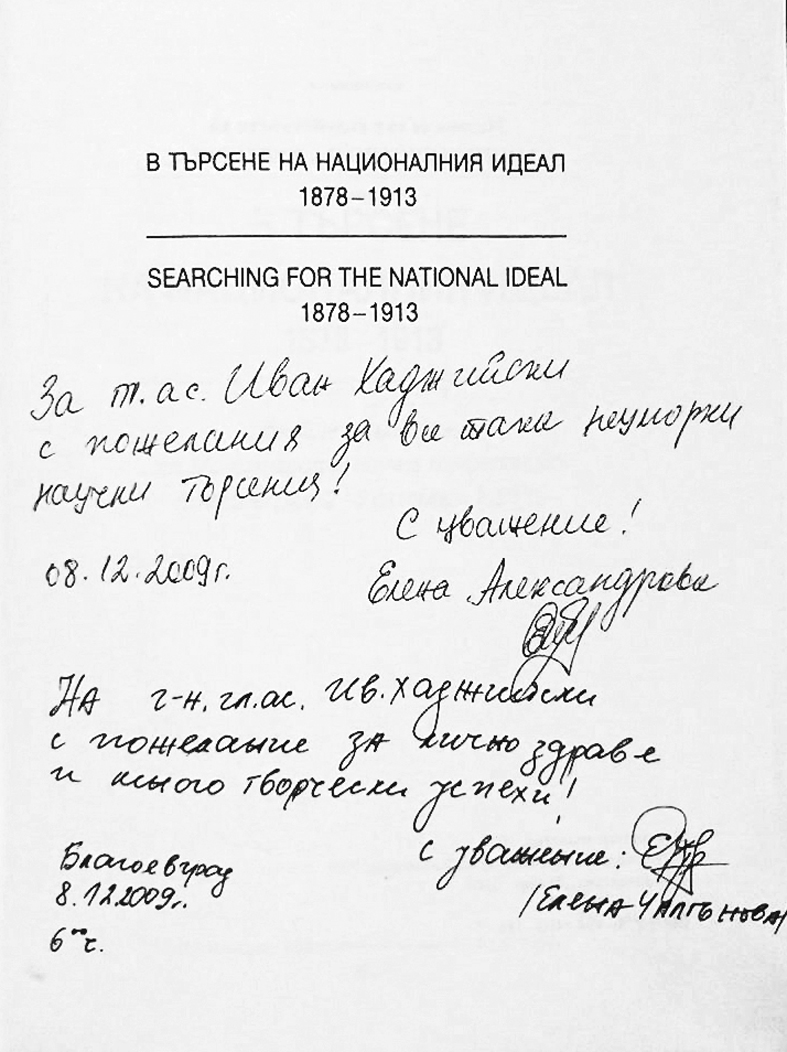 В ТЪРСЕНЕ НА НАЦИОНАЛНИЯ ИДЕАЛ
1878–1913
SEARCHING FOR THE NATIONAL IDEAL
1878–1913
За гл.ас. Иван Хаджийски
с пожелания за все така неуморни
научни търсения!
С уважение!
08.12.2009г. Елена Александрова
На г-н. гл.ас. Ив. Хаджийски
с пожелание за лично здраве
и много творчески успехи!
с уважение:
Благоевград
8.12.2009г. /Елена Чалгънова/
6⁰⁰ ч.